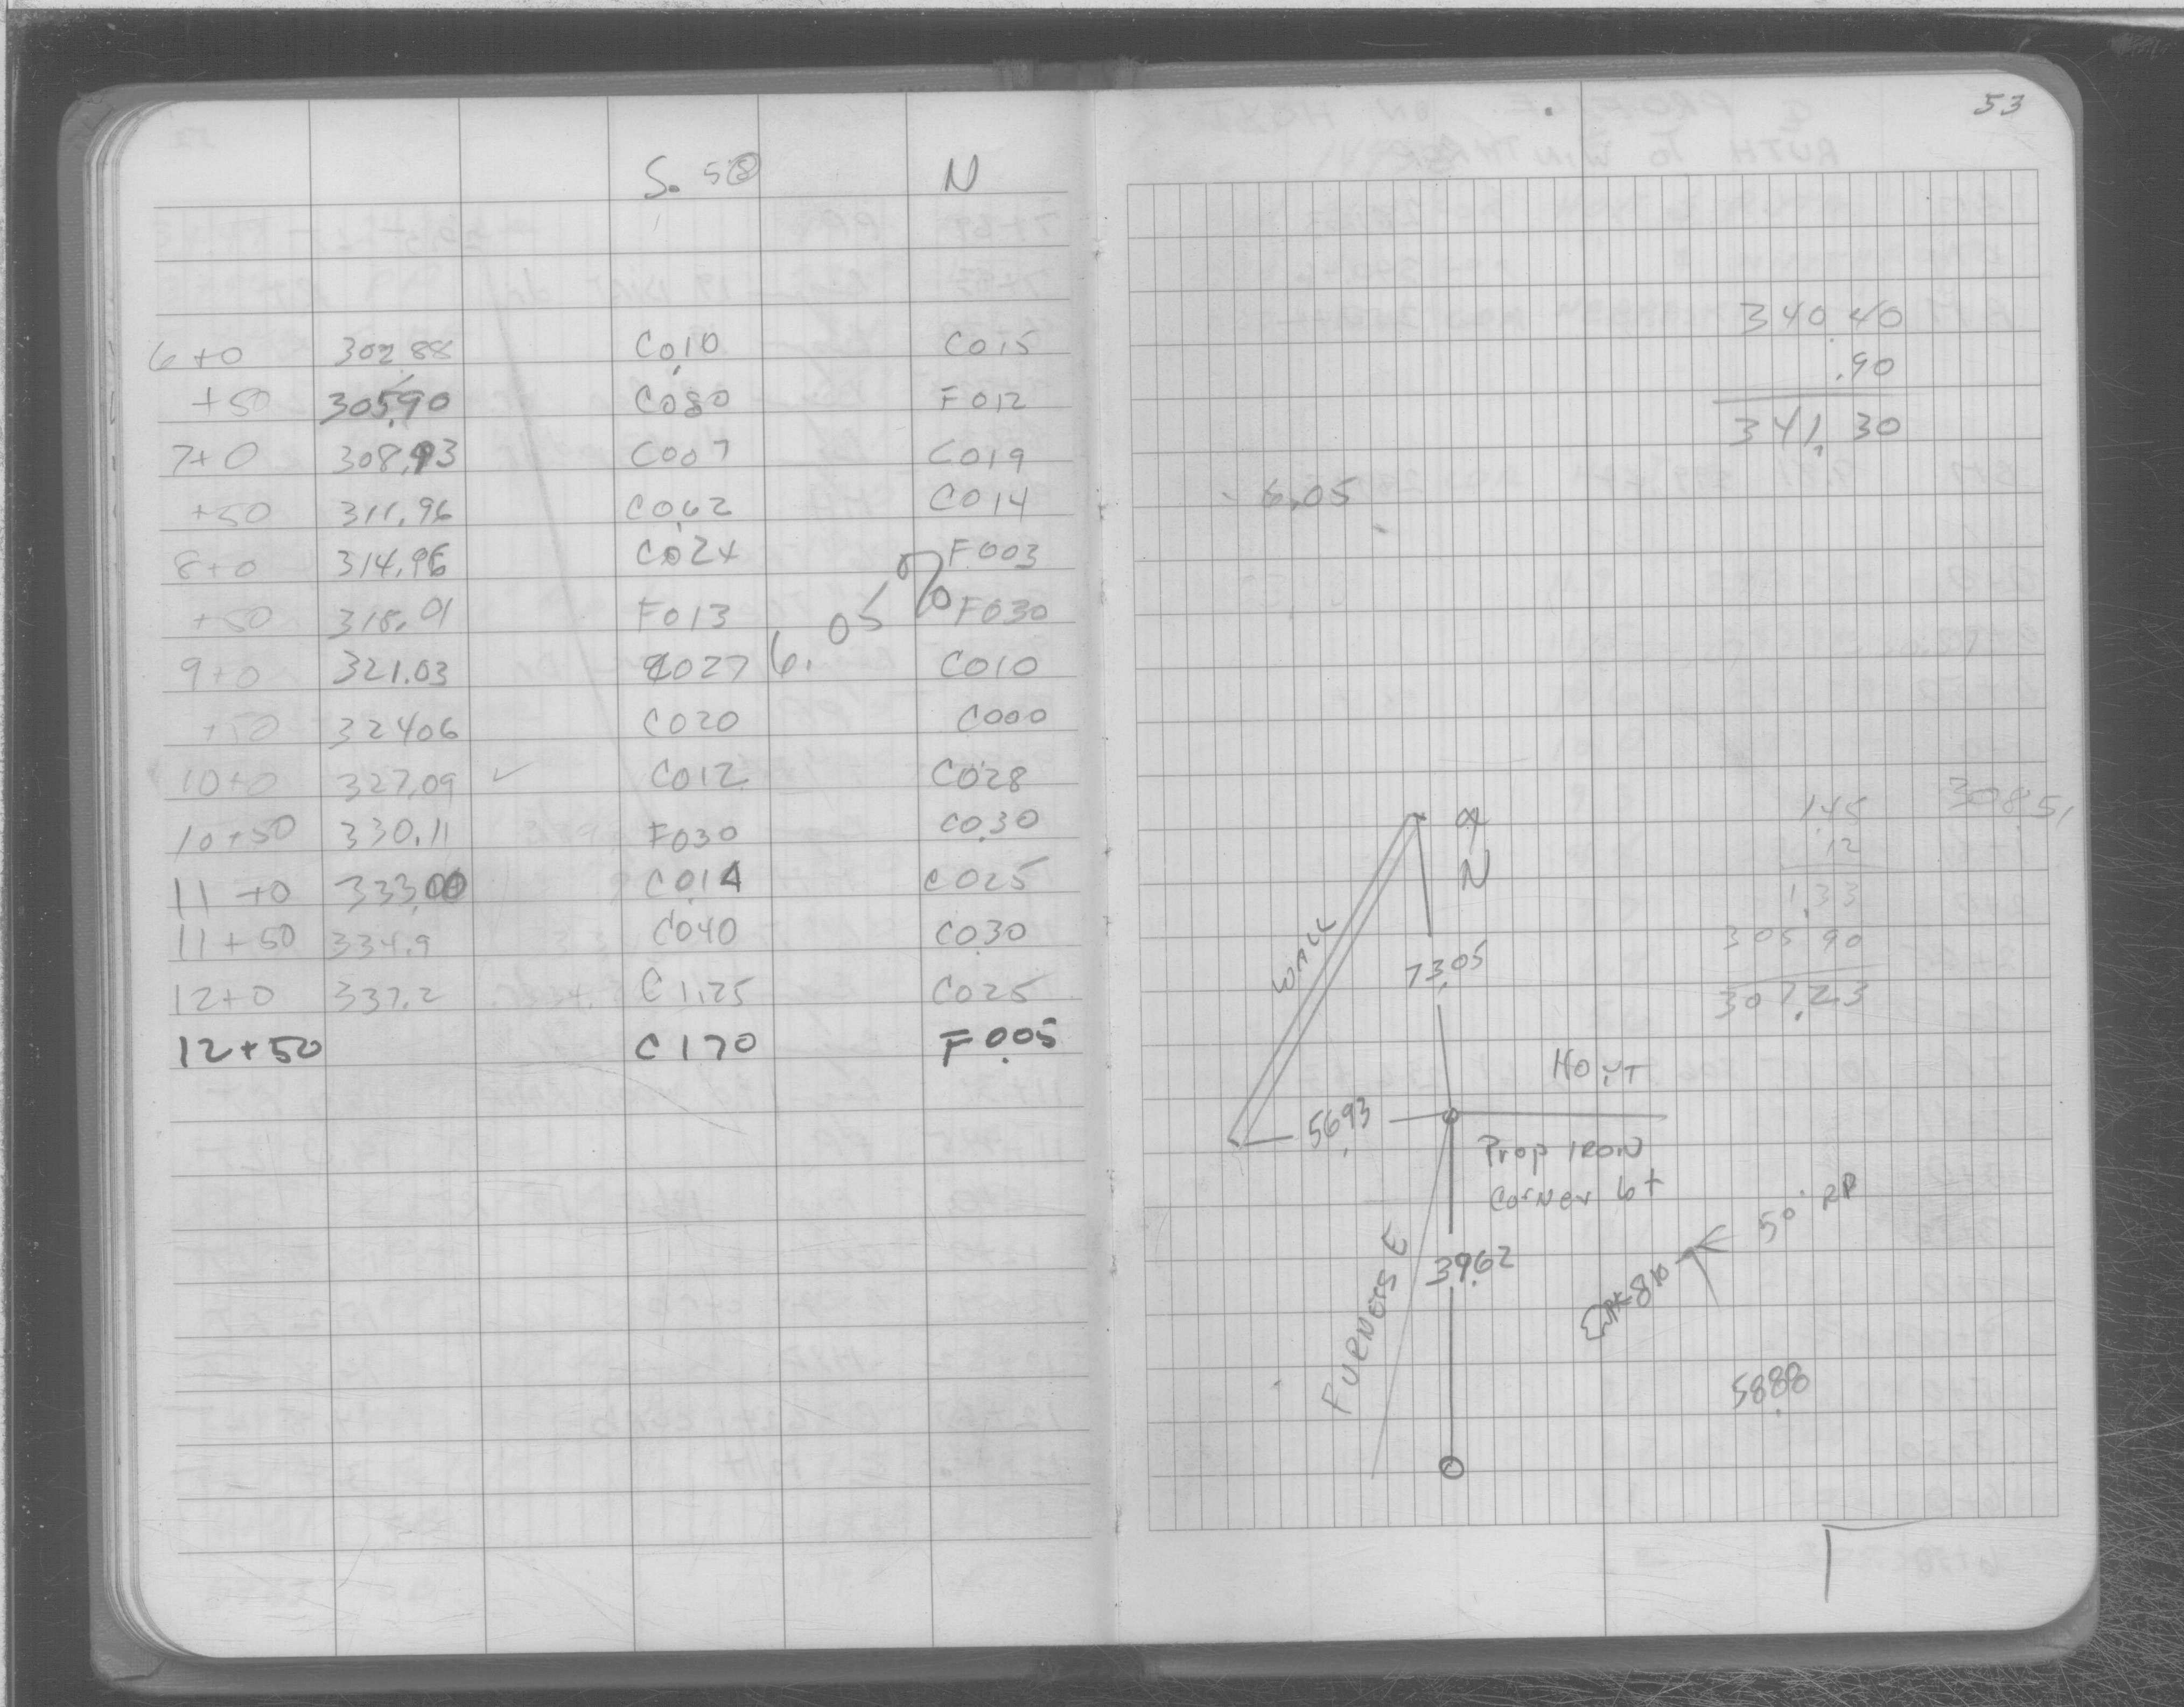 S. 50 N
6+0 302.88 C010 C015
+50 305.90 C080 F012
7+0 308.93 C007 C019
+50 311.96 C062 C014
8+0 314.96 C024 F003
+50 318.01 F013 F030
9+0 321.03 C027 C010
+50 32406 C020 C000
10+0 327.09 ✓ C012 C028
10+50 330.11 F030 C0.30
11+0 333.00 C0.14 C025
11+50 334.9 C040 C0.30
12+0 337.2 C1.25 C025
12+50 C170 F0.05
6.05%
53
340.40
.90
341.30
- 6.05
308.51
1.45
12
1.33
305 90
307.23
N
WALL
73.05
HOYT
56.93
Prop IRON
Corner 6+
50' RP
39.62
810
FURNESS E
58.88